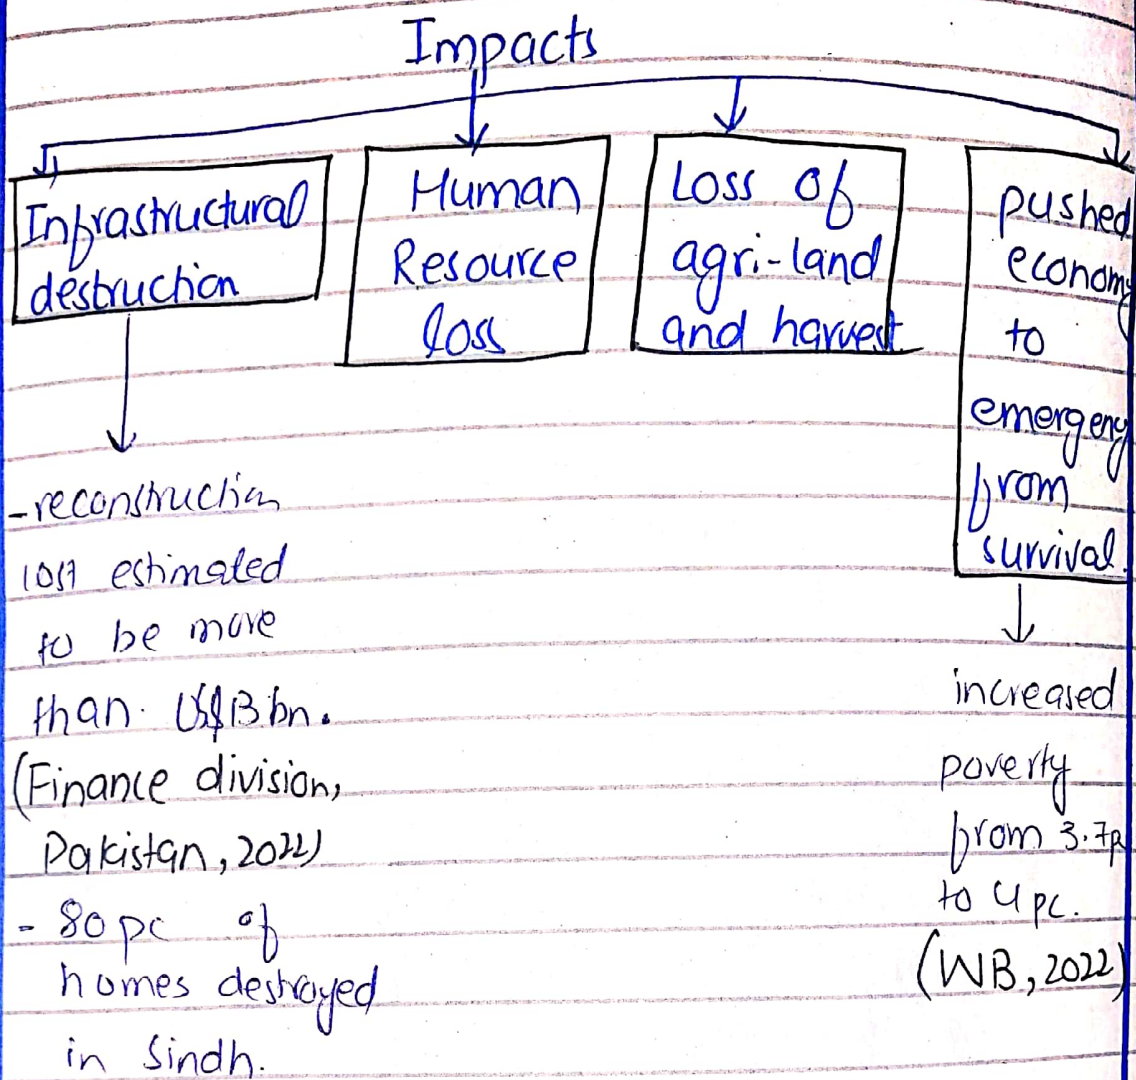 Impacts
Infrastructural
destruction
Human
Resource
loss
Loss of
agri-land
and harvest
pushed
economy
to
emergeny
from
survival.
-reconstruction
cost estimated
to be more
than US$13 bn.
(Finance division,
Pakistan, 2022)
- 80 pc of
homes destroyed
in Sindh.
increased
poverty
from 3.7p
to 4 pc.
(WB, 2022)